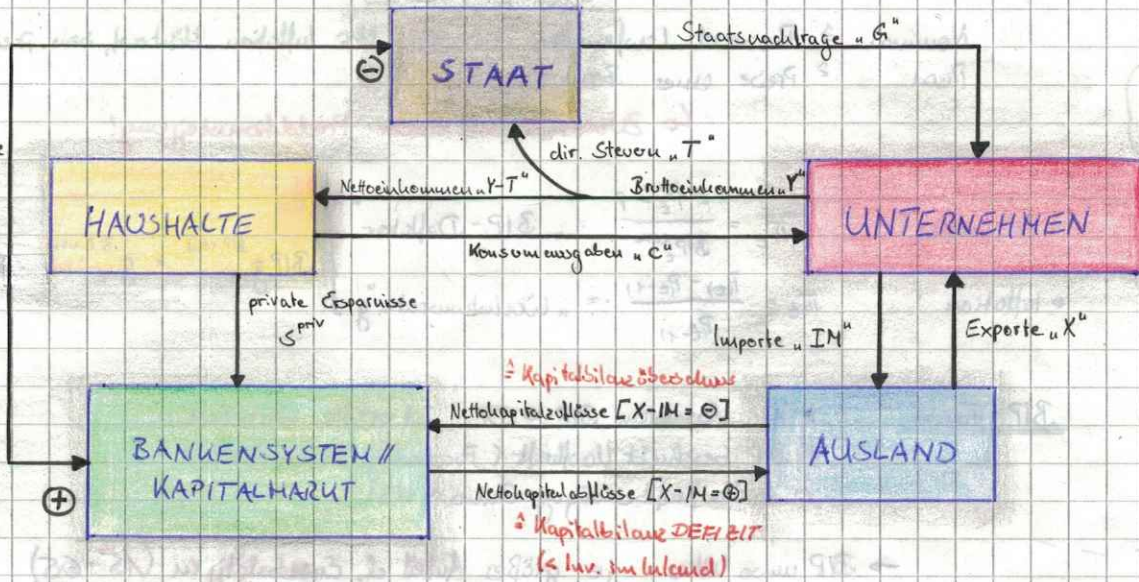 Staatsnachfrage „G"
⊖
STAAT
dir. Steuern „T"
Nettoeinkommen „Y-T"
Bruttoeinkommen „Y"
HAUSHALTE
UNTERNEHMEN
Konsumausgaben „C"
private Ersparnisse
S^priv
Importe „IM"
Exporte „X"
≙ Kapitalbilanzüberschuss
Nettokapitalzuflüsse [X-IM = ⊖]
BANKENSYSTEM //
KAPITALMARKT
AUSLAND
⊕
Nettokapitalabflüsse [X-IM = ⊕]
≙ Kapitalbilanz DEFIZIT
(< Inv. im Inland)